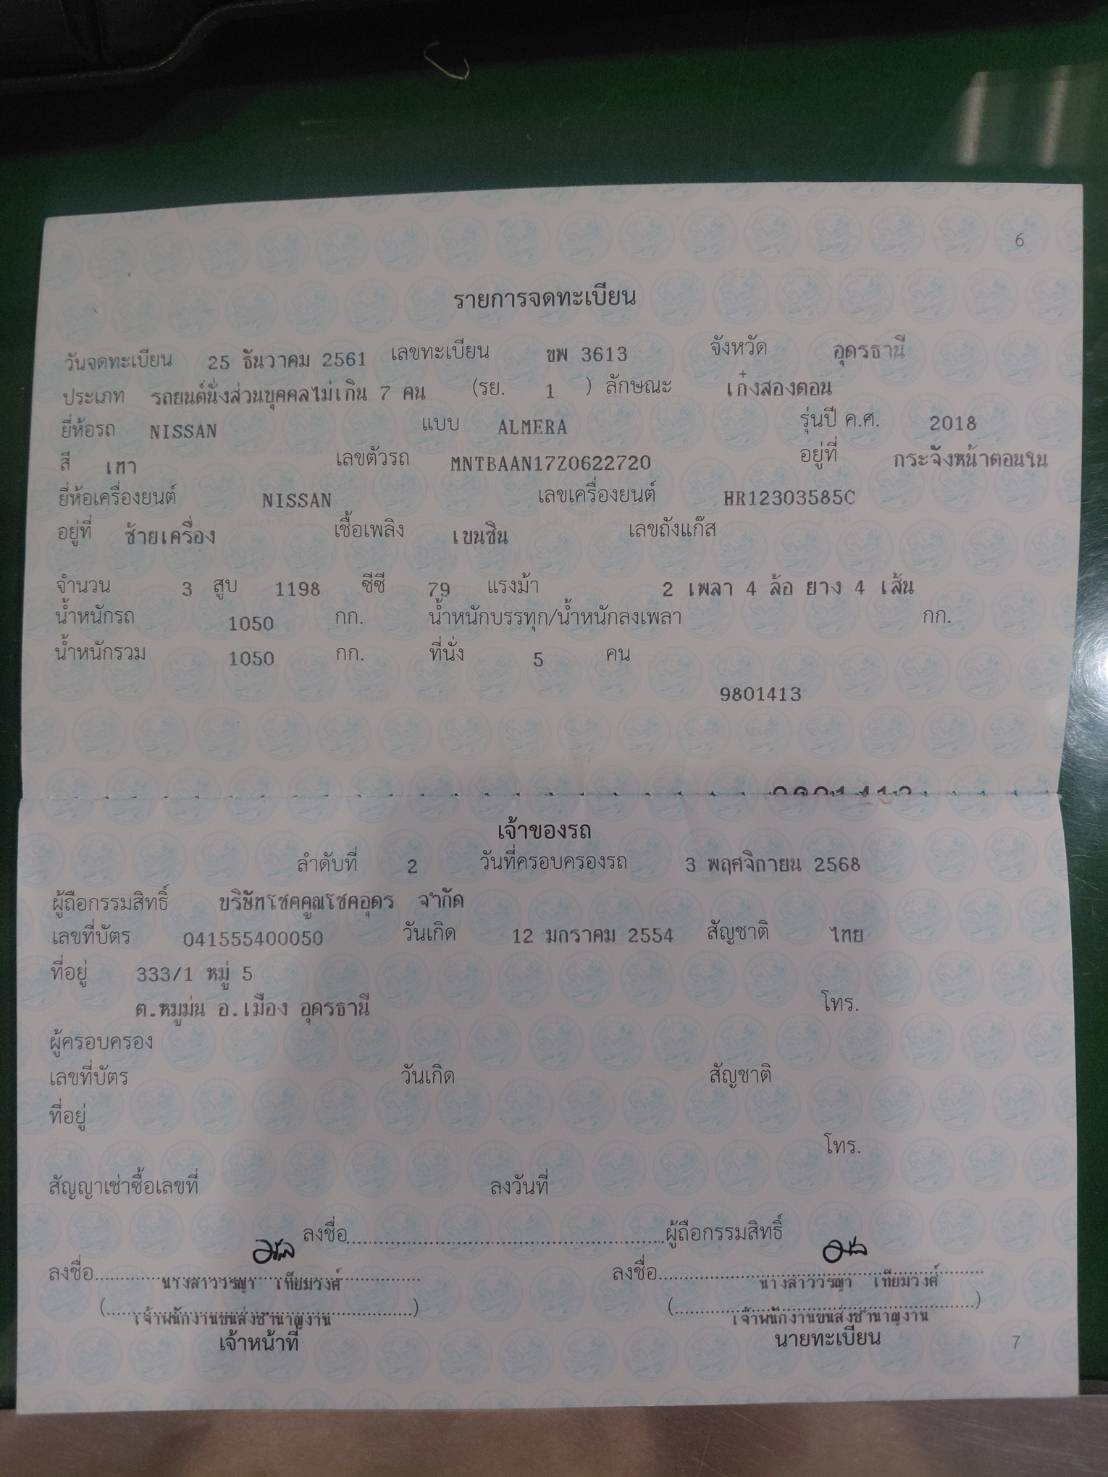 6
รายการจดทะเบียน
วันจดทะเบียน 25 ธันวาคม 2561 เลขทะเบียน ขพ 3613 จังหวัด อุดรธานี
ประเภท รถยนต์นั่งส่วนบุคคลไม่เกิน 7 คน (รย. 1 ) ลักษณะ เก๋งสองตอน
ยี่ห้อรถ NISSAN แบบ ALMERA รุ่นปี ค.ศ. 2018
สี เทา เลขตัวรถ MNTBAAN17Z0622720 อยู่ที่ กระจังหน้าตอนใน
ยี่ห้อเครื่องยนต์ NISSAN เลขเครื่องยนต์ HR12303585C
อยู่ที่ ซ้ายเครื่อง เชื้อเพลิง เบนซิน เลขถังแก๊ส
จำนวน 3 สูบ 1198 ซีซี 79 แรงม้า 2 เพลา 4 ล้อ ยาง 4 เส้น
น้ำหนักรถ 1050 กก. น้ำหนักบรรทุก/น้ำหนักลงเพลา กก.
น้ำหนักรวม 1050 กก. ที่นั่ง 5 คน
9801413
เจ้าของรถ
ลำดับที่ 2 วันที่ครอบครองรถ 3 พฤศจิกายน 2568
ผู้ถือกรรมสิทธิ์ บริษัทโชคคูณโชคอุดร จำกัด
เลขที่บัตร 041555400050 วันเกิด 12 มกราคม 2554 สัญชาติ ไทย
ที่อยู่ 333/1 หมู่ 5
ต.หมูม่น อ.เมือง อุดรธานี โทร.
ผู้ครอบครอง
เลขที่บัตร วันเกิด สัญชาติ
ที่อยู่
โทร.
สัญญาเช่าซื้อเลขที่ ลงวันที่
ลงชื่อ ผู้ถือกรรมสิทธิ์
ลงชื่อ นางสาววรญา เทียมวงศ์ ลงชื่อ นางสาววรญา เทียมวงศ์
(เจ้าพนักงานขนส่งชำนาญงาน) (เจ้าพนักงานขนส่งชำนาญงาน)
เจ้าหน้าที่ นายทะเบียน 7